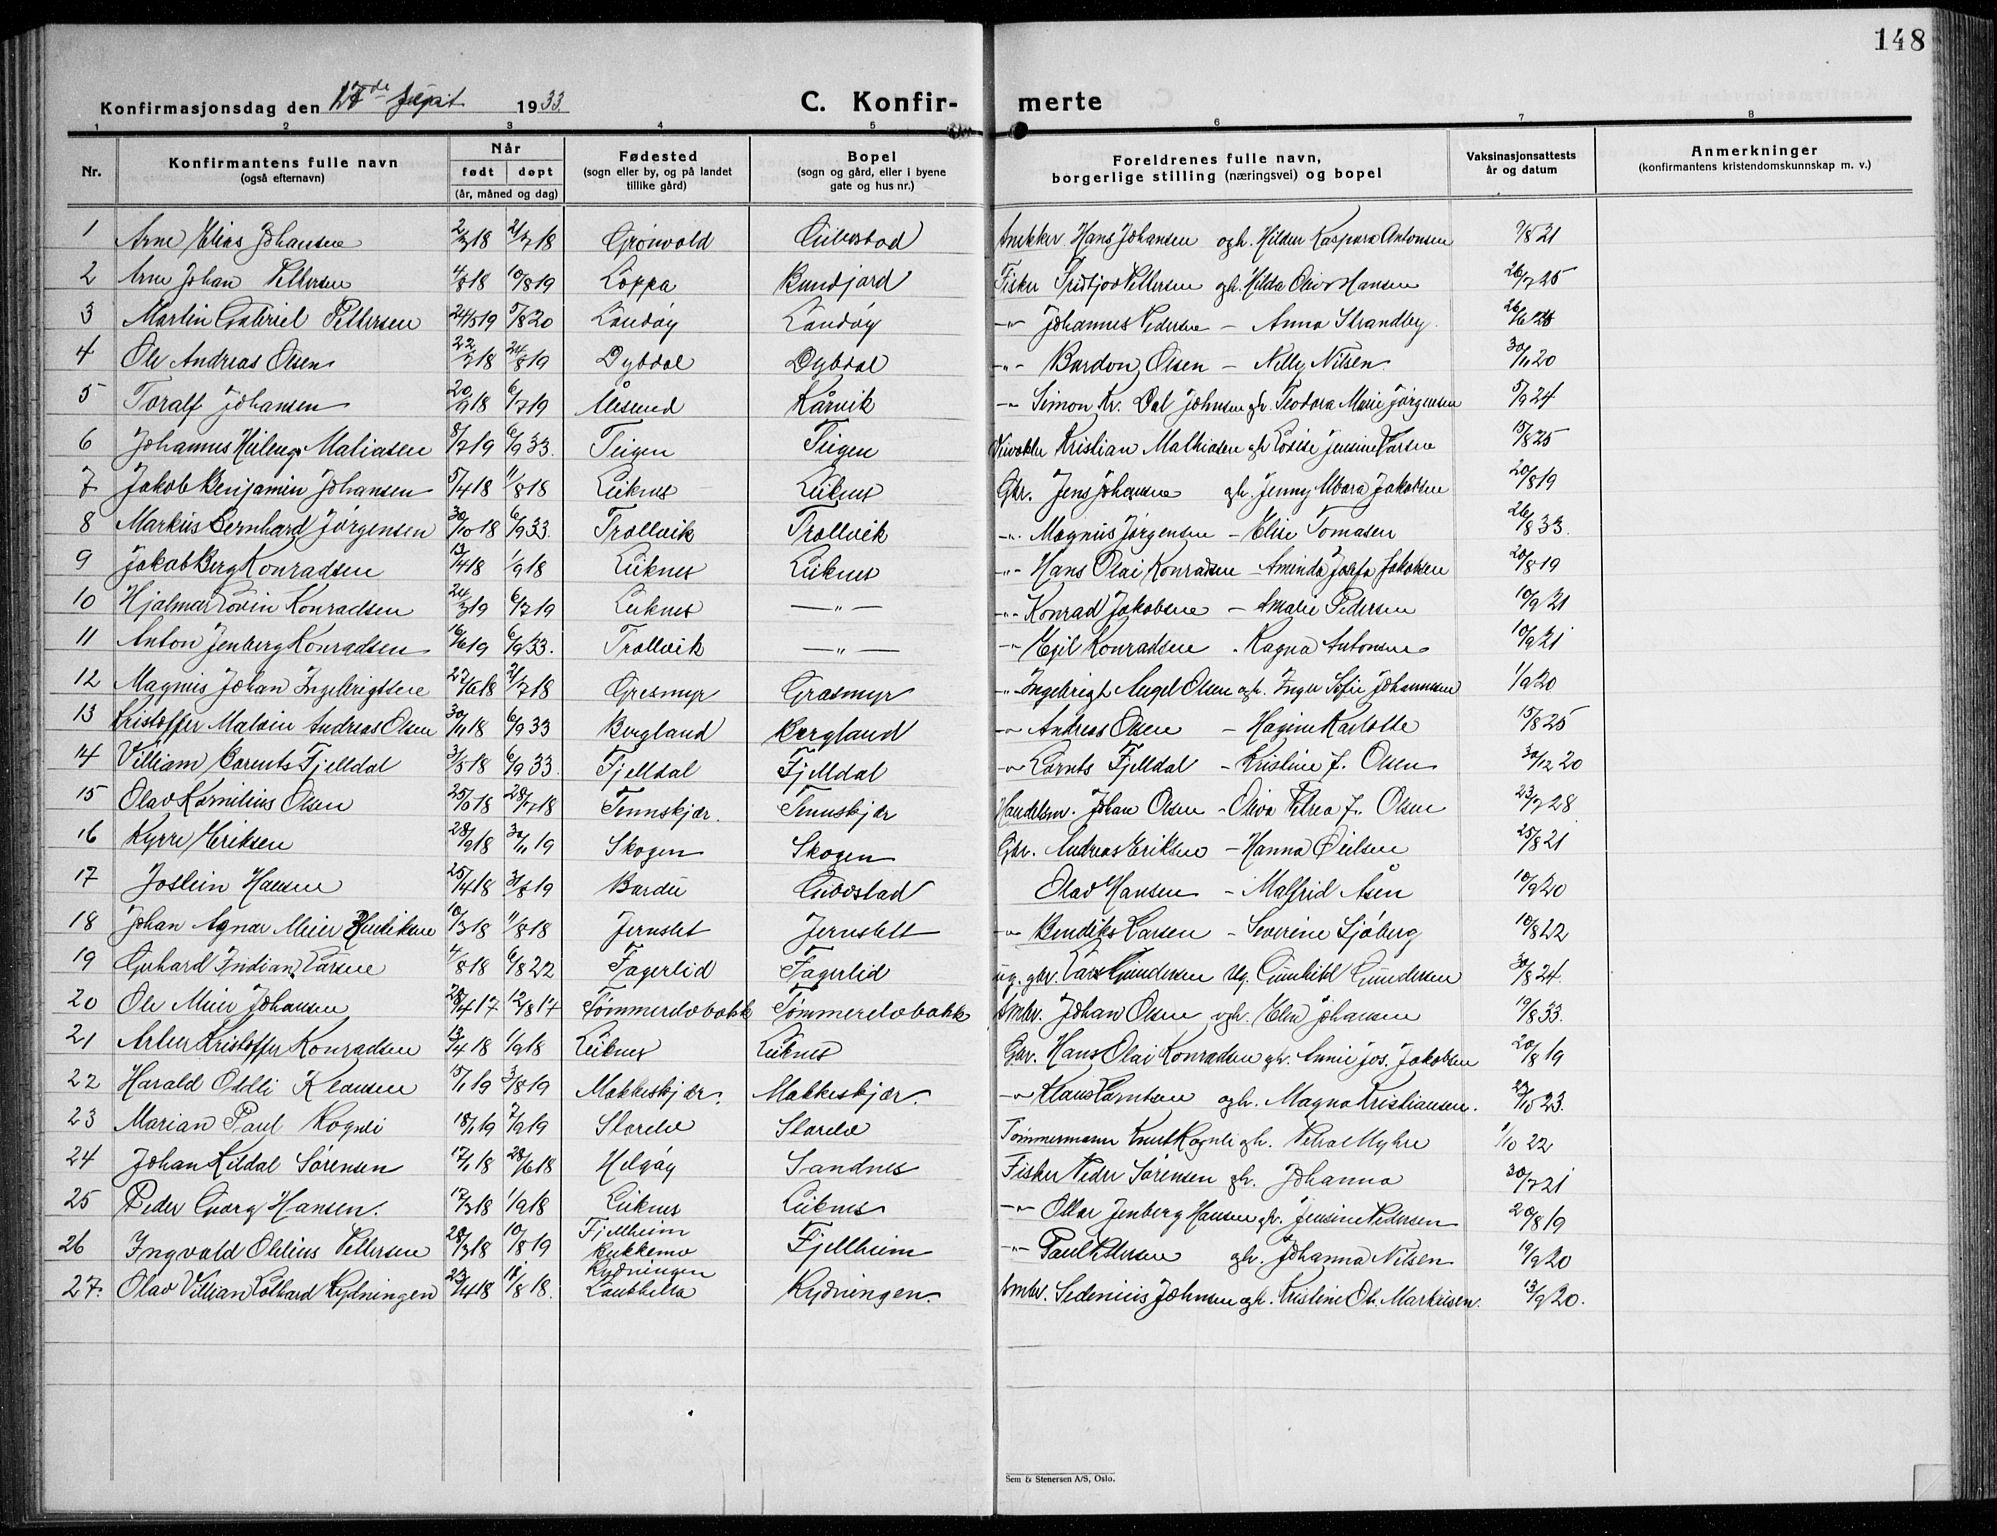 148
Konfirmasjonsdag den 17de Sept 1933.
C. Konfir- merte
1 2 3 4 5 6 7 8
Nr. Konfirmantens fulle navn (også efternavn) Når født døpt (år, måned og dag) Fødested (sogn eller by, og på landet tillike gård) Bopel (sogn og gård, eller i byene gate og hus nr.) Foreldrenes fulle navn, borgerlige stilling (næringsvei) og bopel Vaksinasjonsattests år og datum Anmerkninger (konfirmantens kristendomskunnskap m. v.)
1 Arne Elias Johansen 2/3 18 21/7 18 Grönvold Gibostad Snekker Hans Johansen ogh. Hilder Kaspara Antonsen 9/8 21
2 Arne Johan Pettersen 4/8 18 10/8 19 Loppa Bundjord Fisker Fridtjov Pettersen gh. Hilda Oliv Hansen 26/7 25
3 Martin Gabriel Pettersen 24/5 19 5/8 20 Sandøy Sandøy -"- Johannes Pedersen - Anna Strandby 26/6 28
4 Ole Andreas Olsen 22/7 18 24/8 19 Dybdal Dybdal -"- Bardon Olsen - Nelly Nilsen 30/11 20
5 Toralf Johansen 20/9 18 6/7 19 Ålesund Kårvik -" Simon Kr. Dal Johnsen gh. Teodora Marie Jørgensen 5/9 24
6 Johannes Matiasen 8/7 19 6/9 33. Teigen Teigen Kristian Mathiasen gh Lovise Jensine Larsen 15/8 25
7 Jakob Benjamin Johansen 5/4 18 11/8 18 Leiknes Leiknes Gbr. Jens Johansen gh. Jenny Jakobsen 20/8 19
8 Markus Bernhard Jørgensen 30/10 18 6/9 33. Trollvik Trollvik -"- Magnus Jørgensen - Elise Tomasen 26/8 33.
9 Jakob Berg Konradsen 13/4 18 1/9 18 Leiknes Leiknes -"- Hans Olai Konradsen - Aminda Josefa Jakobsen 20/8 19
10 Hjalmar Edvin Konradsen 24/3 19 6/7 19 Leiknes -"- -"- Konrad Jakobsen - Amalie Pedersen 10/9 21
11 Anton Jenberg Konradsen 16/6 19 6/9 33. Trollvik -"- -" Egil Konradsen - Ragna Antonsen 10/9 21
12 Magnus Johan Ingebrigtsen 27/6 18 21/7 18 Gresmyr Grasmyr -"- Ingebrigt Angel Olsen ogh. Inger Sofie Johannesen 1/9 20
13 Kristoffer Malvin Andreas Olsen 30/11 18 6/9 33 Bergland Bergland -" Andreas Olsen - Hagine Karlotte 15/8 25
14 Villiam Barents Fjelldal 31/5 18 6/9 33. Fjelldal Fjelldal -" Fjelldal - Kristine J. Olsen 30/12 20
15 Olav Kornelius Olsen 25/6 18 28/7 18 Tennskjær. Tennskjær Handelsm. Johan Olsen - Oliva Petrea J. Olsen 23/7 28
16 Kyrre Eriksen 28/9 18 30/11 19 Skogen Skogen Gbr. Andreas Eriksen - Hanna Øeilsen 25/8 21
17 Jostein Hansen 25/4 18 31/8 19 Bardu Gibostad Olav Hansen - Malfrid Åsen 10/9 20
18 Johan Agnar Meier 10/3 18 11/8 18 Jernslet Jernslett -" Bendiks Larsen - Severine Sjøberg 10/8 22
19 Gerhard Indian Larsen 4/8 18 6/8 22 Fagerlid Fagerlid ug. gbr. Lars Gundersen ug. Gunhild Gundersen 30/8 24.
20 Ole Meier Johansen 28/4 17 12/8 17 Tømmerelvbakk Tømmerelvbakk Småbr. Johan Olsen ogh. Elen Johansen 19/8 33.
21 Artur Kristoffer Konradsen 13/4 18 1/9 18 Leiknes Leiknes Gbr. Hans Olai Konradsen gh. Annie Jos. Jakobsen 20/8 19
22 Harald Odeli Klausen 15/1 19 3/8 19 Makkeskjær. Makkeskjær. -" Klaus ogh. Magna Kristiansen. 23/10 23.
23 Marian Paul Rognli 18/1 19 7/9 19 Storelv Storelv Tømmermann Knut Rognli gh. Petra Myhre 1/10 22
24 Johan Kildal Sørensen 17/1 18 28/6 18 Helgöy Sandnes Fisker Peder Sørensen gh. Johanna 30/7 21
25 Peder Georg Hansen. 17/3 18 1/9 18 Leiknes Leiknes -"- Ottar Jenberg Hansen gh. Jensine Pedersen 20/8 19
26 Ingvald Othlius Pettersen 28/3 18 10/8 19 Fjellheim Bukkemo Fjellheim -"- Paul Petersen gh. Johanna Nilsen 19/9 20
27. Olav Villian Edvard Rydningen 23/4 18 18/8 18. Rydningen Laukhella Rydningen. Småbr. Sedenius Johnsen ogh. Kristine Ol. Markusen. 13/9 20.
Sem & Stenersen A/S, Oslo.